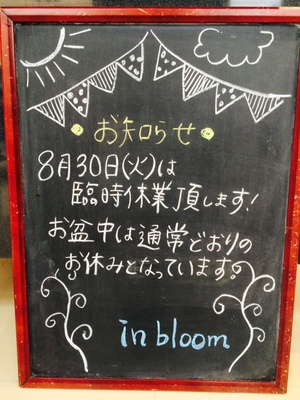 お知らせ
8月30日(火)は
臨時休業頂します!
お盆中は通常どおりの
お休みとなっています。
in bloom